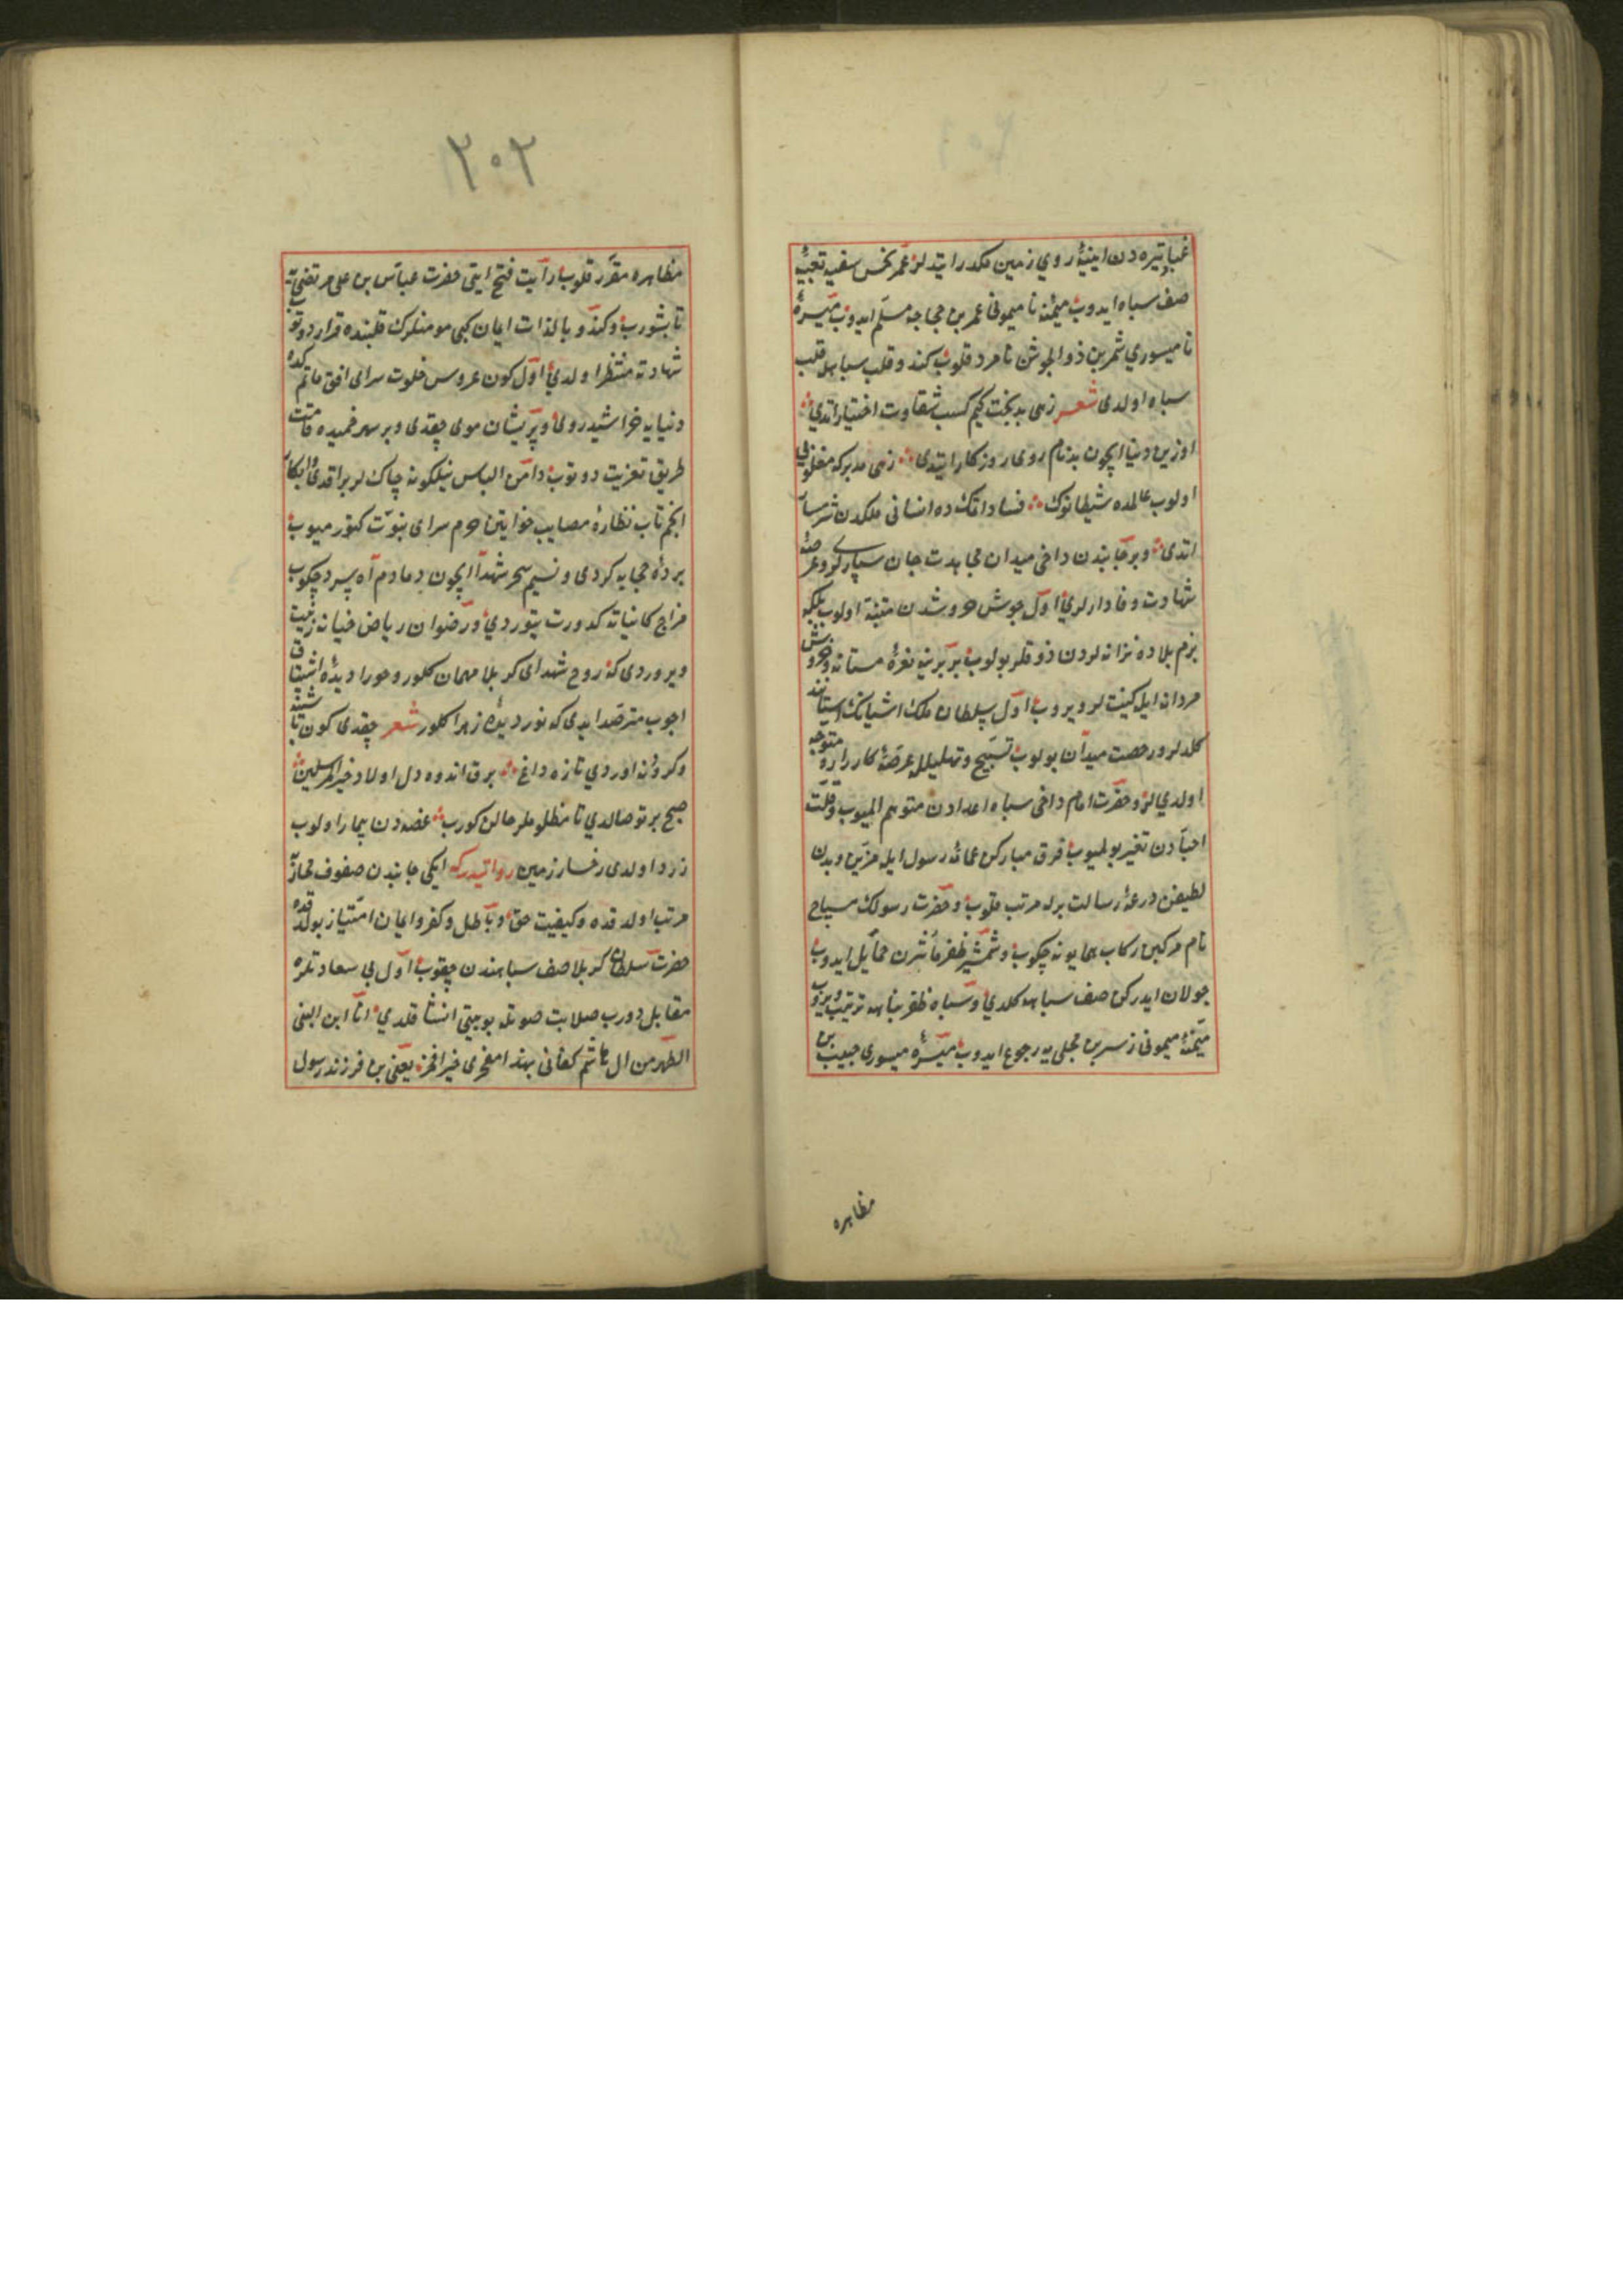 غبار تیره دن اینیۀ روی زمین مکدر ایتدیلر عمر نحس سفیه تعبیۀ
صف سپاه ایدوب میمنۀ نا میمونی عمر بن حجاجه مسلم ایدوب میسرۀ
نا میسوری شمر بن ذو الجوشن نامرد قلوب کندو قلب سپاهله قلب
سپاه اولدی شعر زهی بدبخت کیم کسب شقاوت اختیار اتدی
اوزین دنیا ایچون بدنام روی روزکار ایتدی زهی مدبر که مغلوبی
اولوب عالمده شیطانوک فساد اتمکده انسانی ملکدن شرمسار
اتدی و بر جانبدن داخی میدان مجاهدت جان سپارلری و عرصۀ
شهادت وفادارلری اول جوش و خروشدن متنبه اولوب بلکه
بزم بلاده ترانه لردن ذوقلر بولوب بربرینه نعرۀ مستانه و خروش
مردانه ایله کیفیت لر ویروب اول سلطان ملک اشیانک استانه
کلدیلر و رخصت میدان بولوب تسبیح و تهلیلله عرصۀ کارزاره متوجه
اولدیلر و حضرت امام داخی سپاه اعدادن متوهم المیوب و قلت
احبادن تغیر بولمیوب فرق مبارکن عمامۀ رسول ایله مزین و بدن
لطیفن درعۀ رسالت برله مرتب قلوب و حضرت رسولک سیاح
نام مرکبن رکاب همایونه چکوب و شمشیر ظفر مأثرن حمایل ایدوب
جولان ایدرکن صف سپاهه کلدی و سپاه ظفر پناهه ترتیب ویروب
میمنۀ میمونی زهیر بن عجلی یه رجوع ایدوب میسرۀ میسوری حبیب بن
مظاهره
٢٠٢
مظاهره مقرر قلوب رایت فتح ایتی حضرت عباس بن علی مرتضی یه
تابشورب و کندو بالذات ایمان کبی مومنلرک قلبنده قرار دوتوب
شهادته منتظر اولدی اول کون عروس خلوت سرای افق ماتم کده
دنیایه خراشیده روی و پریشان موی چقدی و بر سهر خمیده قامت
طریق تعزیت دوتوب دامن الباس نیلکونه چاکلر براقدی و ابکار
انجم تاب نظارۀ مصایب خواتین حرم سرای نبوت کتورمیوب
پردۀ حجابه کردی و نسیم سحر شهدا ایچون دمادم آه سرد چکوب
مزاج کائناته کدورت یتوردی و رضوان ریاض جنانه زینت
ویروردی که روح شهدای کربلا مهمان کلور و حورا دیدۀ اشتیاق
اچوب مترصد ایدی که نور دیدۀ زهرا کلور شعر چقدی کون تابشند
و کردونه اوردی تازه داغ برق اندوه دل اولاد خیر المرسلین
صبح پرتو صالدی تا مظلوملر حالن کورب غصه دن بیمار اولوب
زرد اولدی رخسار زمین روایتدر که ایکی جانبدن صفوف محاربه
مرتب اولدقده و کیفیت حق و باطل و کفر و ایمان امتیاز بولدقده
حضرت سلطان کربلا صف سپاهندن چقوب اول بی سعادتلره
مقابل دورب صلابت صوتله بو بیتی انشا قلدی انا ابن العلی
الطهر من ال هاشم کفانی بهذا مفخری خیر افخر یعنی بن فرزند رسول